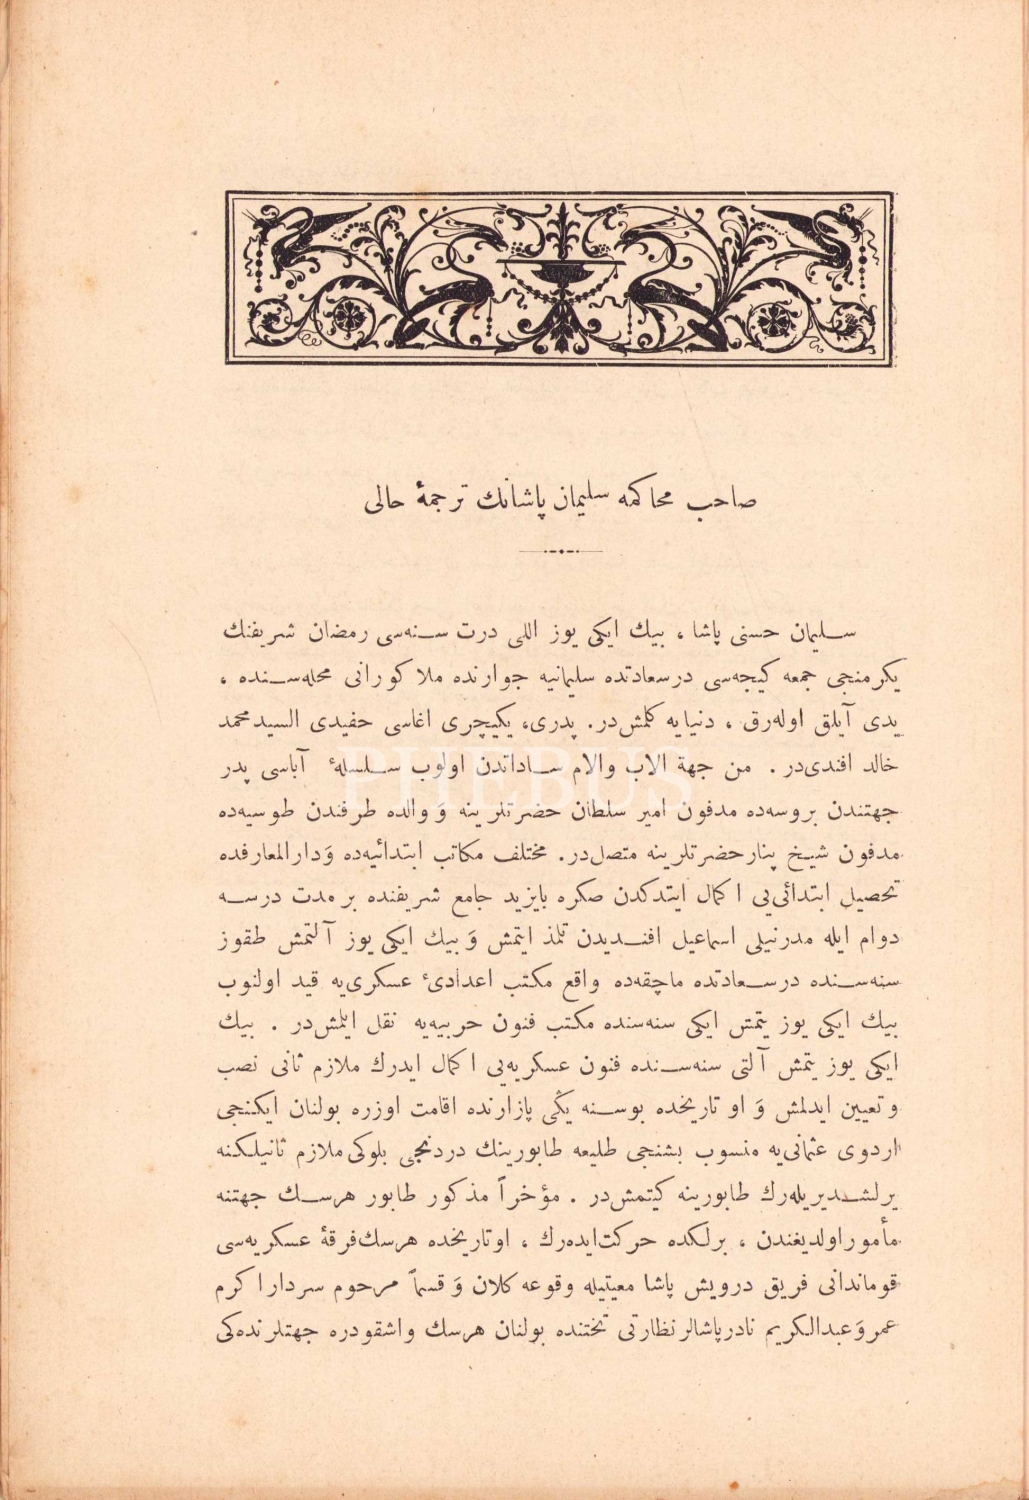 صاحب محاكمه سليمان پاشانك ترجمۀ حالى
سليمان حسنى پاشا ، بيك ايكى يوز اللى درت سنه‌سى رمضان شريفنك
يكرمنجى جمعه كيجه‌سى درسعادتده سليمانيه جوارنده ملا كورانى محله‌سنده ،
يدى آيلق اوله‌رق ، دنيايه كلمش‌در. پدرى، يكيچرى اغاسى حفيدى السيد محمد
خالد افندى‌در . من جهة الاب والام ساداتدن اولوب سلسلهٔ آباسى پدر
جهتندن بروسه‌ده مدفون امير سلطان حضرتلرينه وَ والده طرفندن طوسيه‌ده
مدفون شيخ پنار حضرتلرينه متصل‌در. مختلف مكاتب ابتدائيه‌ده وَ دارالمعارفده
تحصيل ابتدائى‌يى اكمال ايتدكدن صكره بايزيد جامع شريفنده بر مدت درسه
دوام ايله مدرنيلى اسماعيل افنديدن تلمذ ايتمش وَ بيك ايكى يوز آلتمش طقوز
سنه‌سنده درسعادتده ماچقه‌ده واقع مكتب اعدادىٔ عسكرى‌يه قيد اولنوب
بيك ايكى يوز يتمش ايكى سنه‌سنده مكتب فنون حربيه‌يه نقل ايلمش‌در . بيك
ايكى يوز يتمش آلتى سنه‌سنده فنون عسكريه‌يى اكمال ايدرك ملازم ثانى نصب
و تعيين ايدلمش وَ او تاريخده بوسنه يكى پازارنده اقامت اوزره بولنان ايكنجى
اردوى عثمانى‌يه منسوب بشنجى طليعه طابورينك دردنجى بلوكى ملازم ثانيلكنه
يرلشديريله‌رك طابورينه كيتمش‌در . مؤخراً مذكور طابور هرسك جهتنه
مأمور اولديغندن ، برلكده حركت ايده‌رك ، اوتاريخده هرسك فرقۀ عسكريه‌سى
قوماندانى فريق درويش پاشا معيتيله وقوعه كلان وَ قسماً مرحوم سردار اكرم
عمر وَ عبدالكريم نادر پاشالر نظارتى تختنده بولنان هرسك و اشقودره جهتلرنده‌كى
PHEBUS